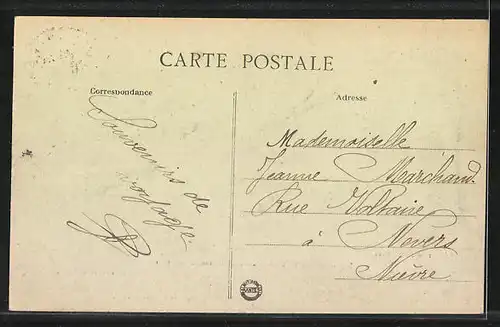 CARTE POSTALE
Correspondance
Souvenirs de
voyage
Adresse
Mademoiselle
Jeanne Marchand
Rue Voltaire
à Nevers
Nièvre